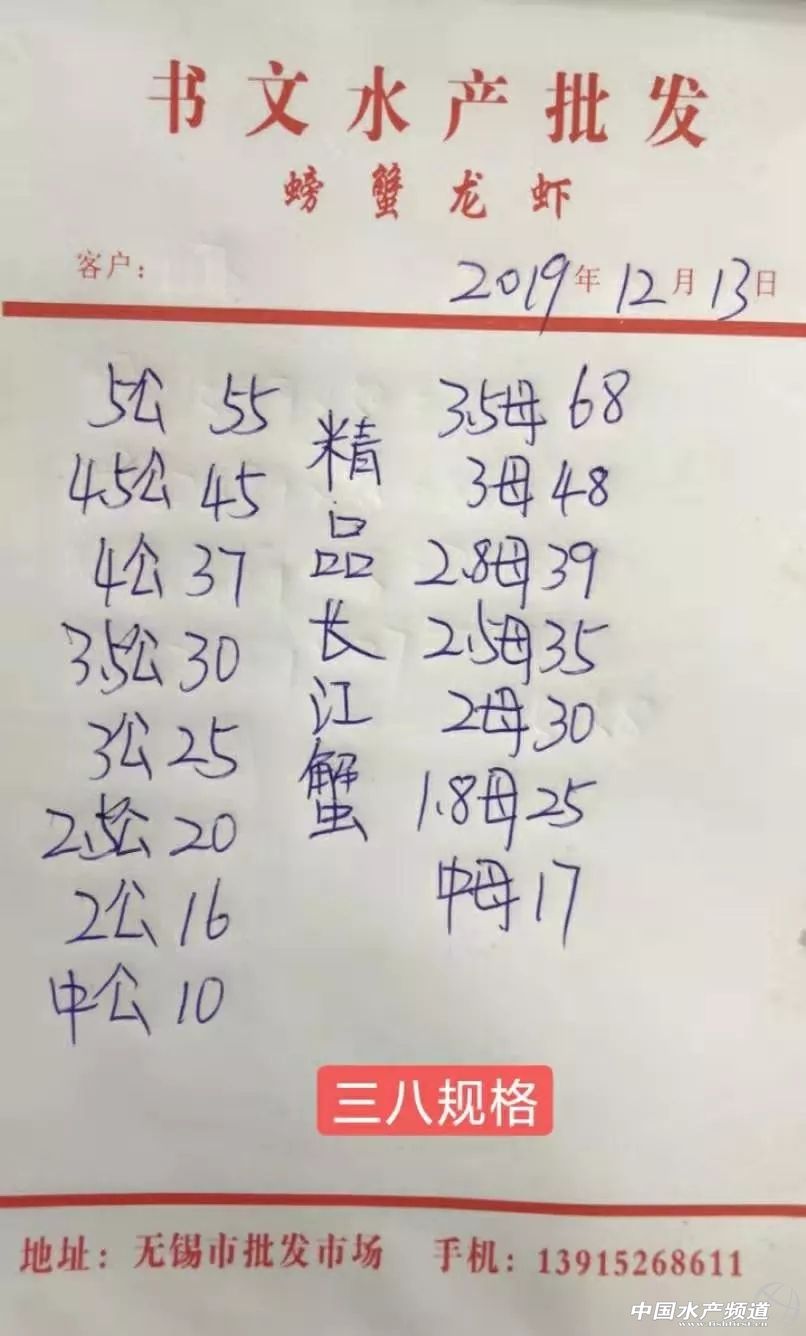 书文水产批发
螃蟹龙虾
客户：
2019年12月13日
5公 55
4.5公 45
4公 37
3.5公 30
3公 25
2.5公 20
2公 16
中公 10
精品长江蟹
3.5母 68
3母 48
2.8母 39
2.5母 35
2母 30
1.8母 25
中母 17
三八规格
地址：无锡市批发市场 手机：13915268611
中国水产频道
www.fishfirst.cn